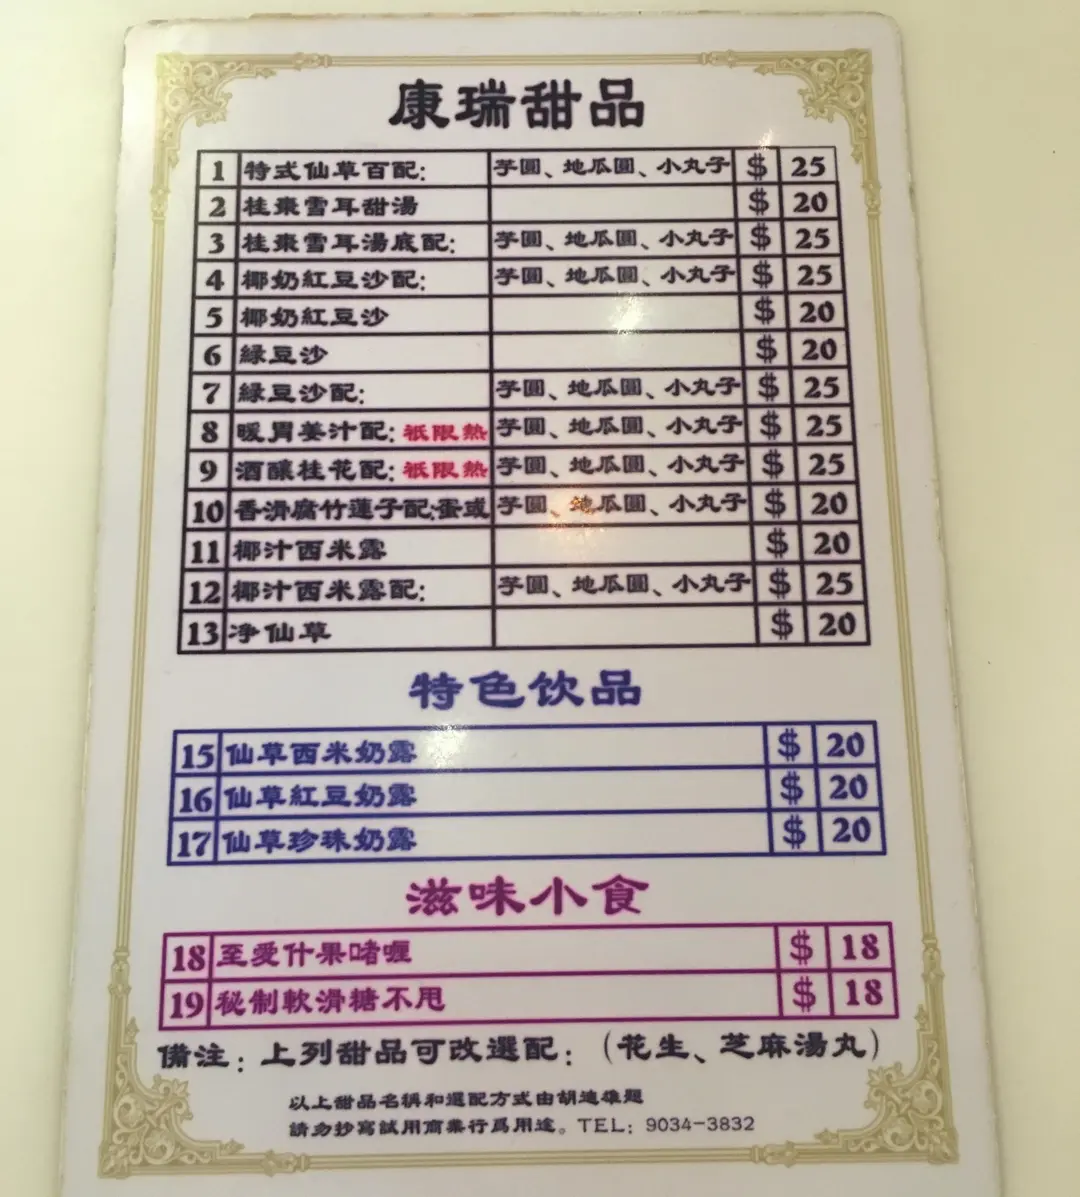 康瑞甜品
1 特式仙草百配: 芋圓、地瓜圓、小丸子 $ 25
2 桂棗雪耳甜湯 $ 20
3 桂棗雪耳湯底配: 芋圓、地瓜圓、小丸子 $ 25
4 椰奶紅豆沙配: 芋圓、地瓜圓、小丸子 $ 25
5 椰奶紅豆沙 $ 20
6 綠豆沙 $ 20
7 綠豆沙配: 芋圓、地瓜圓、小丸子 $ 25
8 暖胃姜汁配: 祇限熱 芋圓、地瓜圓、小丸子 $ 25
9 酒釀桂花配: 祇限熱 芋圓、地瓜圓、小丸子 $ 25
10 香滑腐竹蓮子配:蛋或 芋圓、地瓜圓、小丸子 $ 20
11 椰汁西米露 $ 20
12 椰汁西米露配: 芋圓、地瓜圓、小丸子 $ 25
13 净仙草 $ 20
特色饮品
15 仙草西米奶露 $ 20
16 仙草紅豆奶露 $ 20
17 仙草珍珠奶露 $ 20
滋味小食
18 至愛什果啫喱 $ 18
19 秘制軟滑糖不甩 $ 18
備注: 上列甜品可改選配: (花生、芝麻湯丸)
以上甜品名稱和選配方式由胡達雄題
請勿抄寫試用商業行爲用途。TEL: 9034-3832